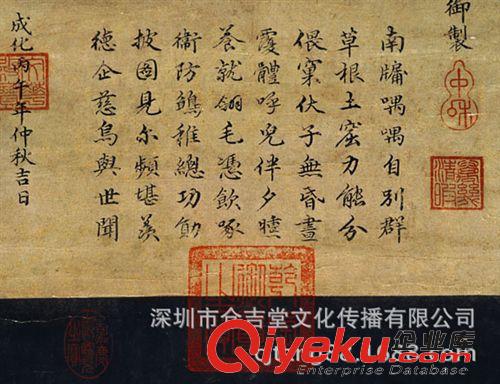 御製
南牖喁喁自別群
草根土窟力能分
偎窠伏子無昏晝
覆體呼兒伴夕曛
養就翎毛憑飲啄
衛防鶵稚總功勛
披圖見尔頻堪羨
徳企慈烏與世聞
成化丙午年仲秋吉日
深圳市仝吉堂文化传播有限公司
企业库
Enterprise Database